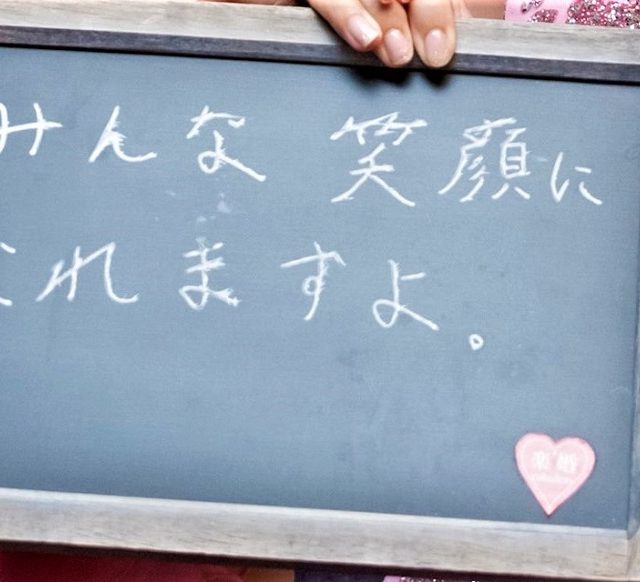 みんな笑顔に
れますよ。
楽婚